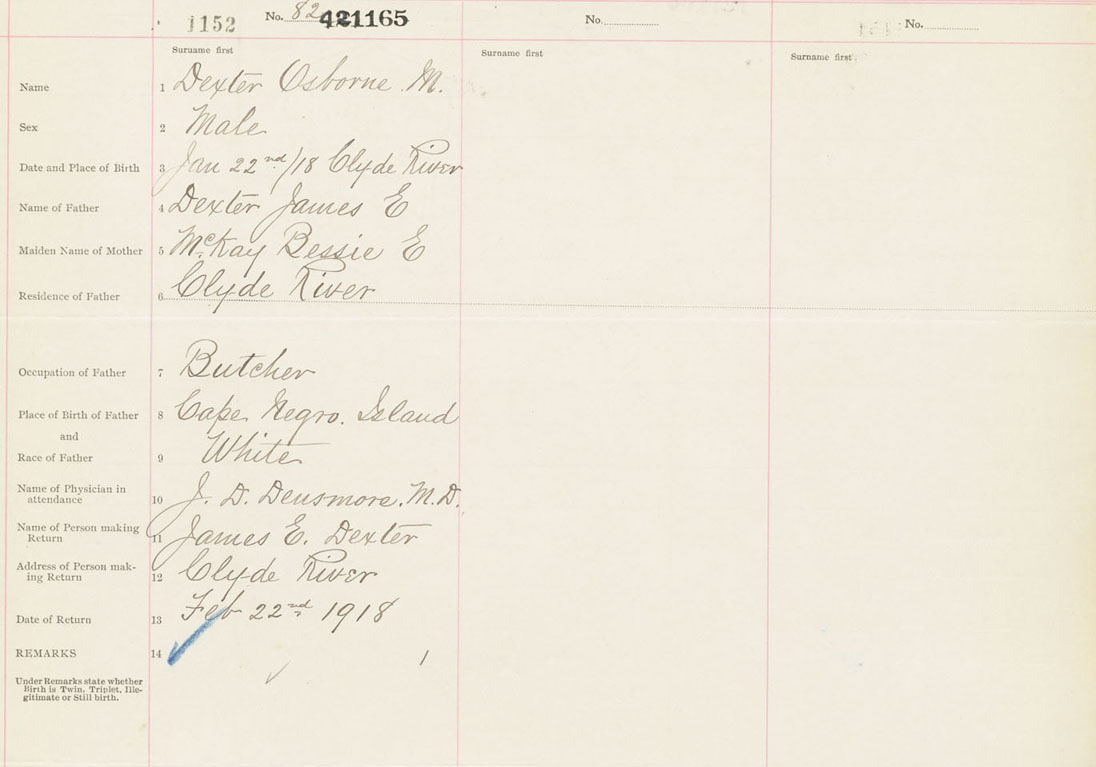 1152 No. 82 421165 No. No.
Surname first Surname first Surname first
Name 1 Dexter Osborne M.
Sex 2 Male
Date and Place of Birth 3 Jan 22nd/18 Clyde River
Name of Father 4 Dexter James E
Maiden Name of Mother 5 McKay Bessie E
Residence of Father 6 Clyde River
Occupation of Father 7 Butcher
Place of Birth of Father 8 Cape Negro. Island
and
Race of Father 9 White
Name of Physician in
attendance 10 J. D. Densmore. M.D.
Name of Person making
Return 11 James E. Dexter
Address of Person mak-
ing Return 12 Clyde River
Date of Return 13 Feb 22nd 1918
REMARKS 14 1
Under Remarks state whether
Birth is Twin, Triplet, Ille-
gitimate or Still birth.